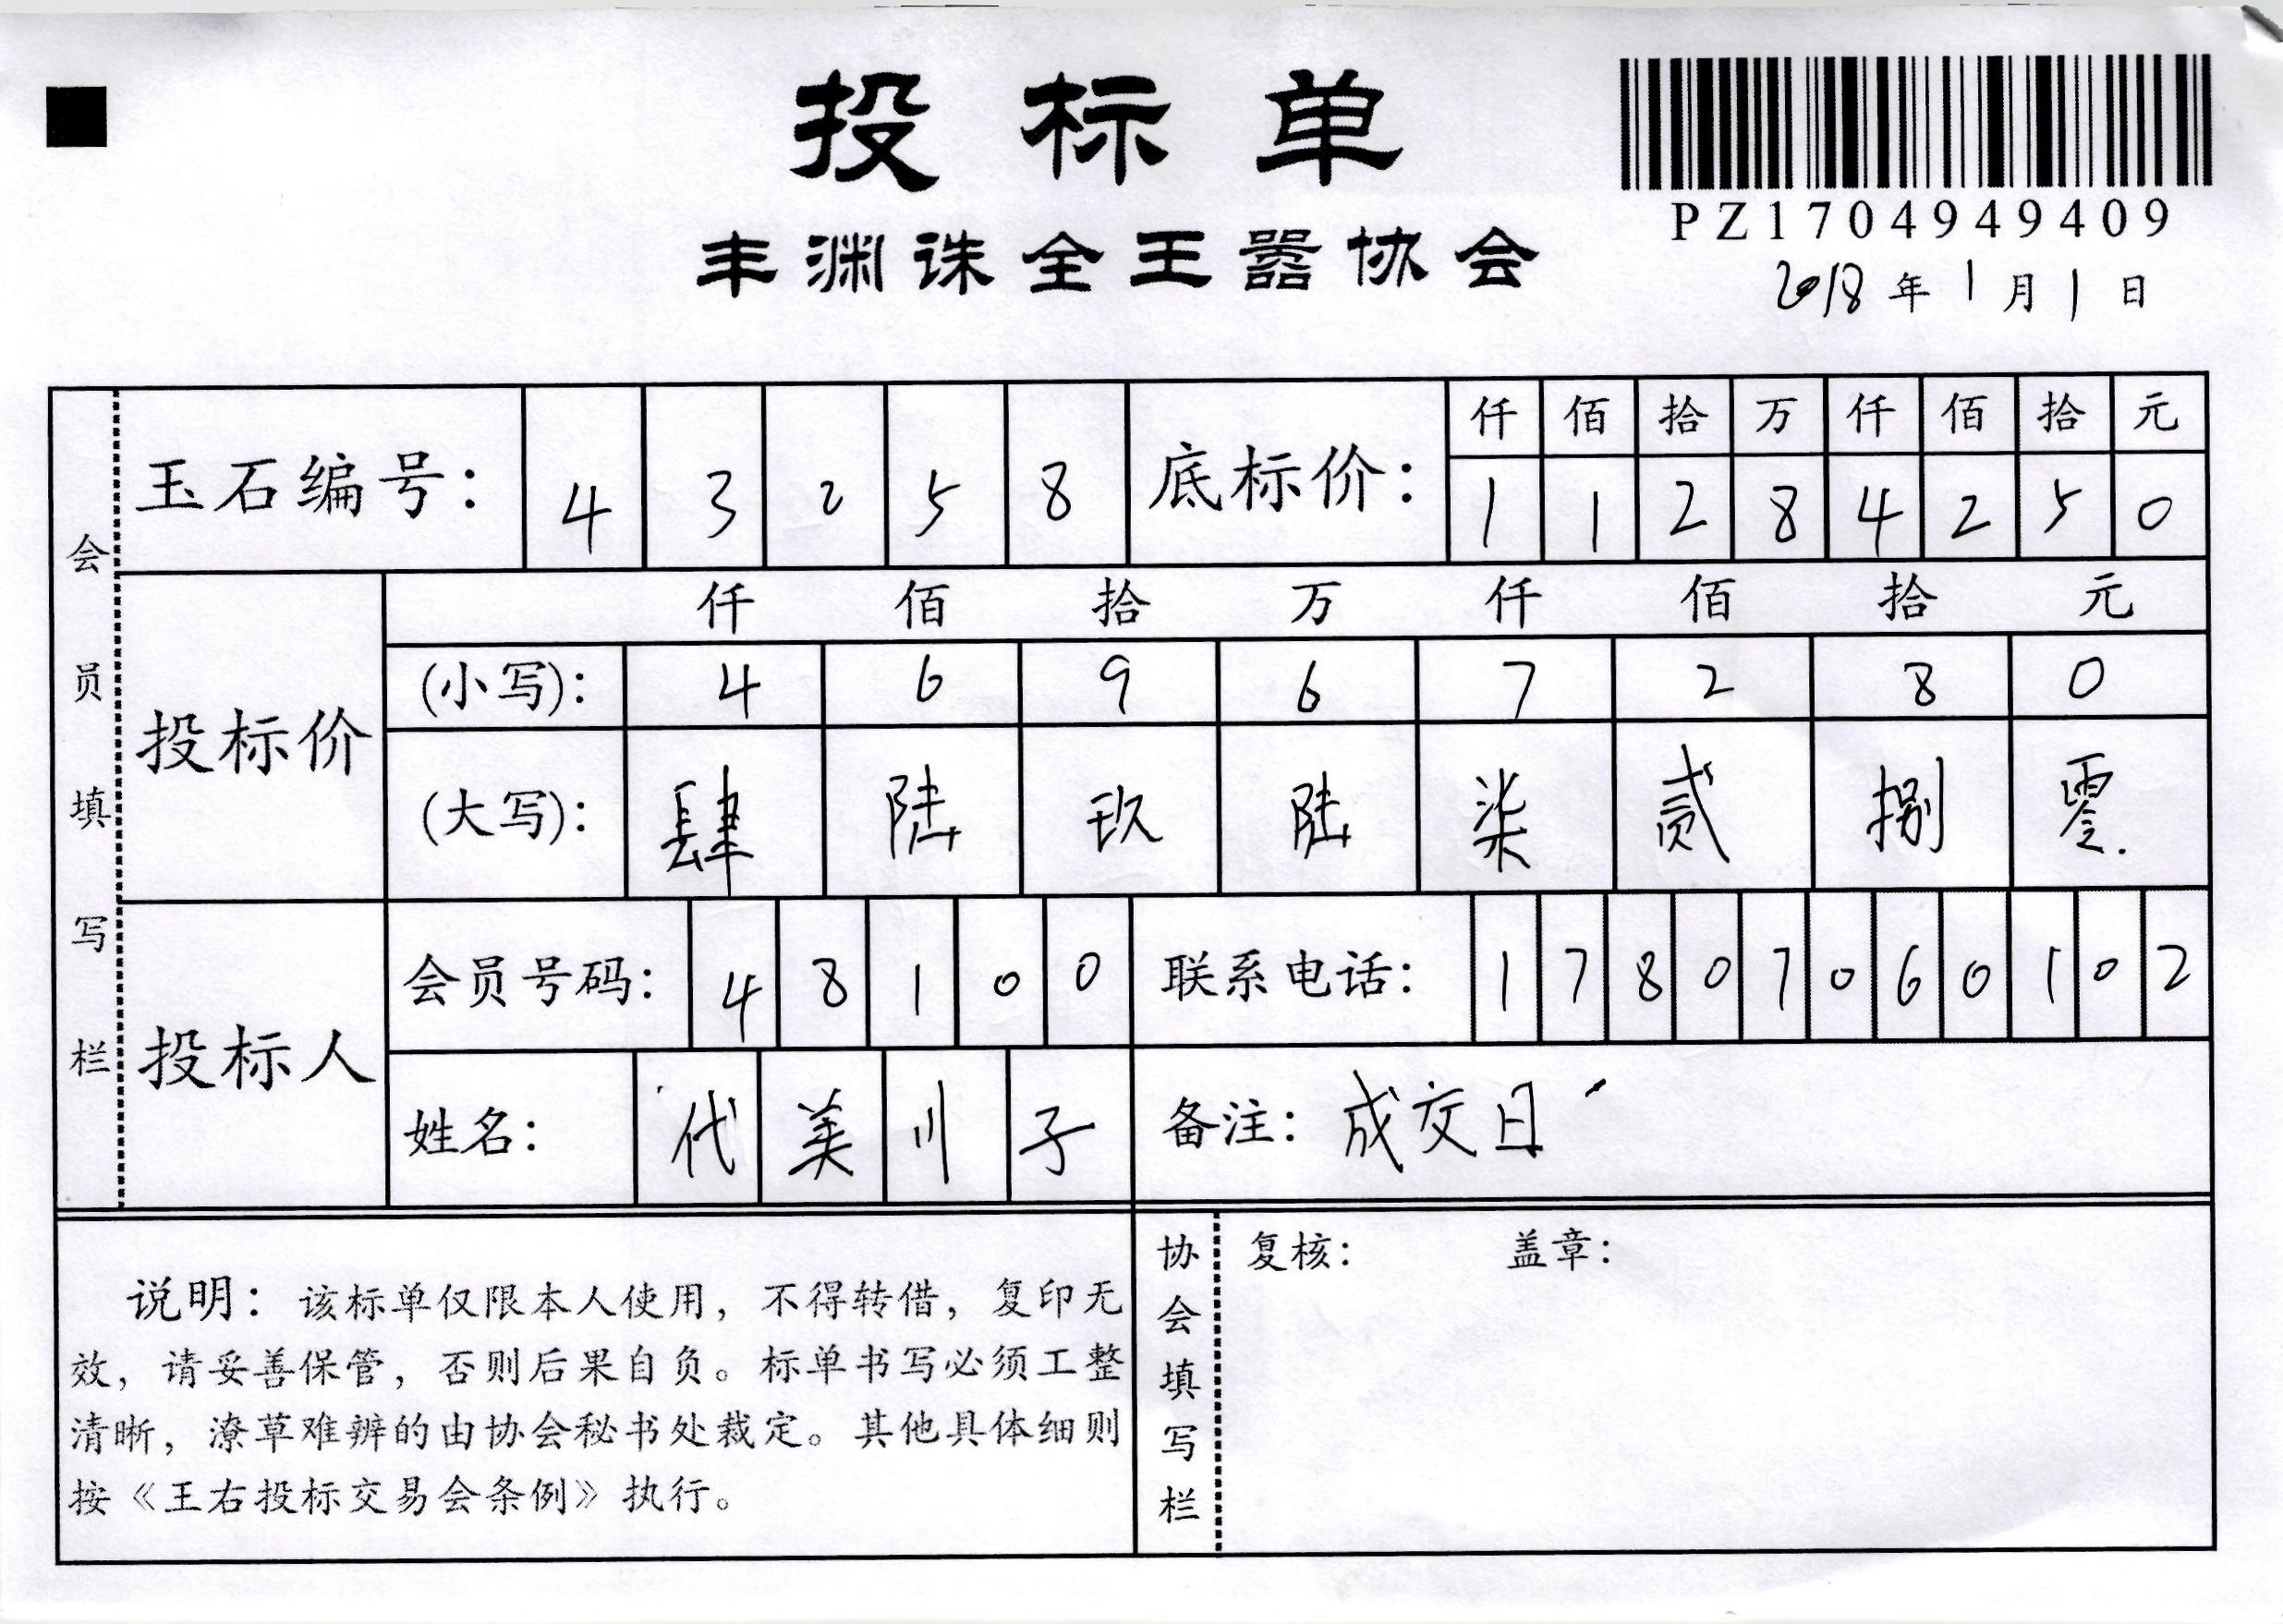 投标单
丰渊诛全王嚣协会
PZ1704949409
2018年1月1日
会员填写栏
玉石编号: 4 3 2 5 8
底标价: 仟 佰 拾 万 仟 佰 拾 元
1 1 2 8 4 2 5 0
投标价
仟 佰 拾 万 仟 佰 拾 元
(小写): 4 6 9 6 7 2 8 0
(大写): 肆 陆 玖 陆 柒 贰 捌 零
投标人
会员号码: 4 8 1 0 0
联系电话: 1 7 8 0 7 0 6 0 1 0 2
姓名: 代 美 川 子
备注: 成交日
说明: 该标单仅限本人使用, 不得转借, 复印无
效, 请妥善保管, 否则后果自负。标单书写必须工整
清晰, 潦草难辨的由协会秘书处裁定。其他具体细则
按《王右投标交易会条例》执行。
协会填写栏
复核: 盖章: